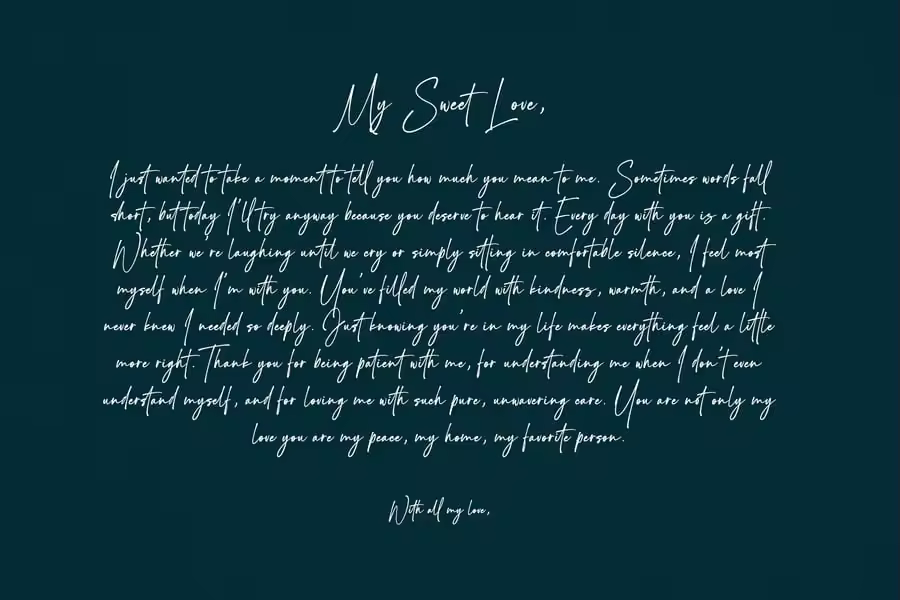 My Sweet Love,
I just wanted to take a moment to tell you how much you mean to me. Sometimes words fall
short, but today I'll try anyway because you deserve to hear it. Every day with you is a gift.
Whether we're laughing until we cry or simply sitting in comfortable silence, I feel most
myself when I'm with you. You've filled my world with kindness, warmth, and a love I
never knew I needed so deeply. Just knowing you're in my life makes everything feel a little
more right. Thank you for being patient with me, for understanding me when I don't even
understand myself, and for loving me with such pure, unwavering care. You are not only my
love you are my peace, my home, my favorite person.
With all my love,